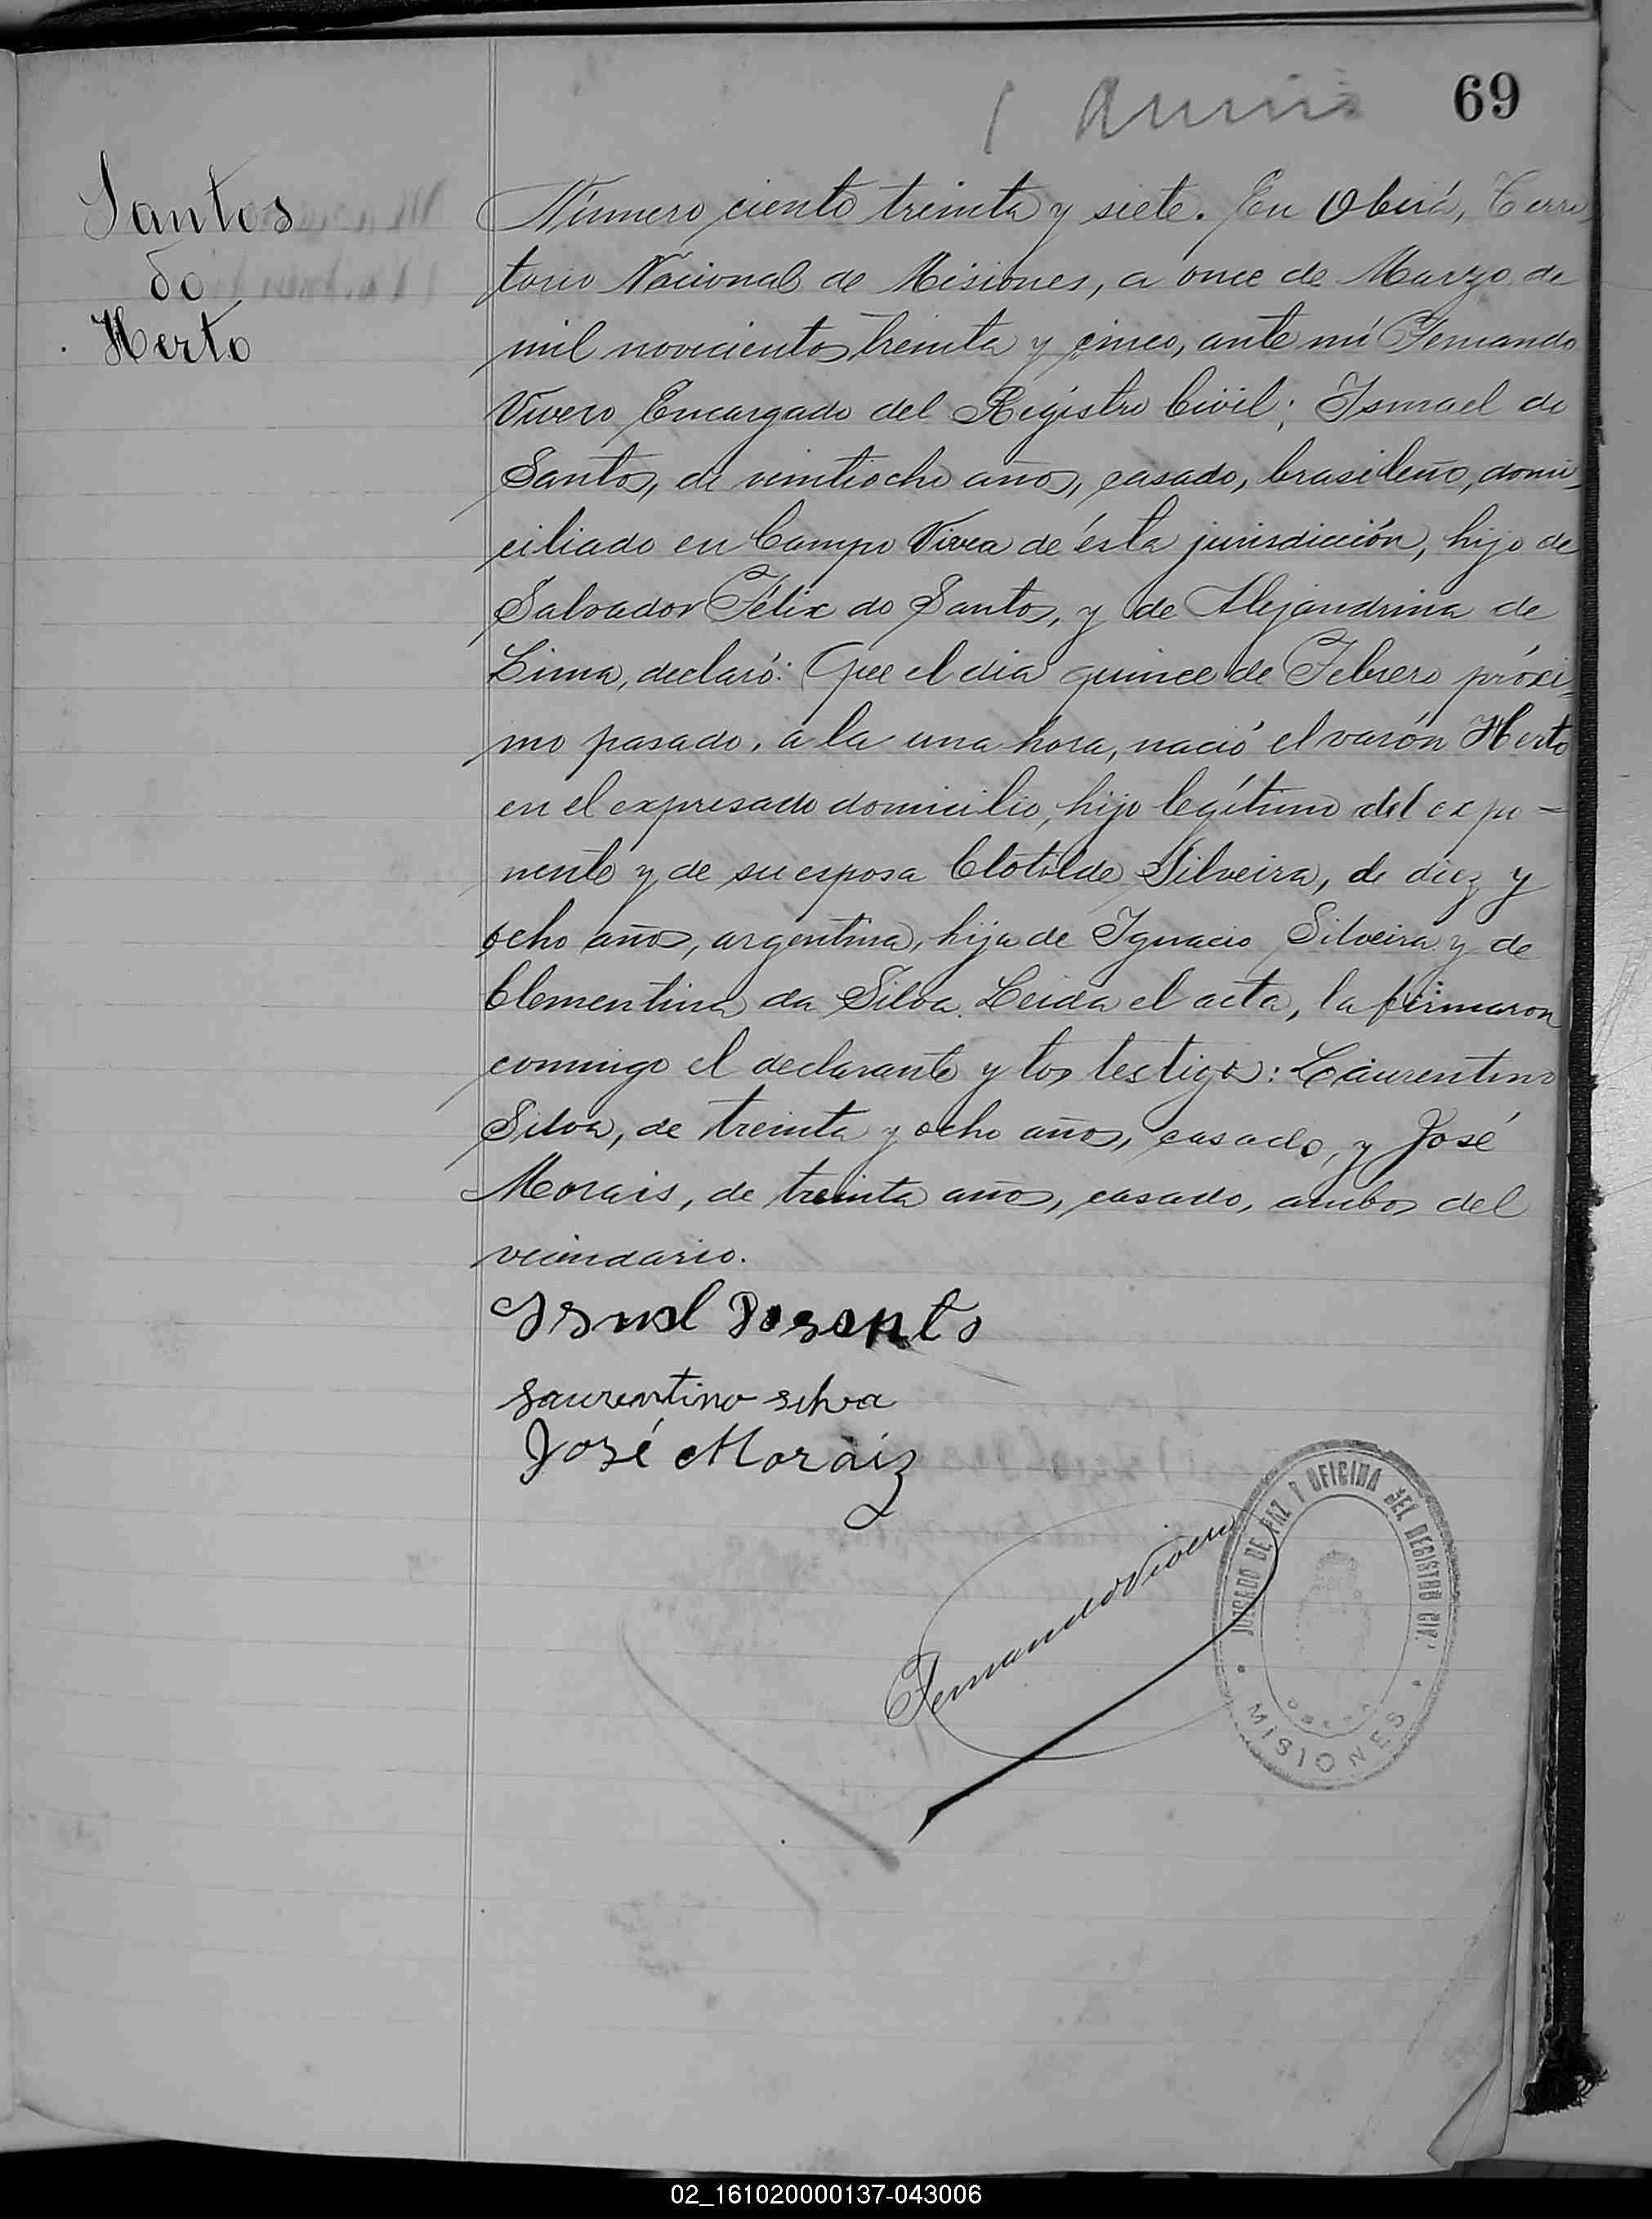 69
Santos
do
Herto
Número ciento treinta y siete. En Oberá, Terri
torio Nacional de Misiones, a once de Marzo de
mil novecientos treinta y cinco, ante mí Fernando
Vivero Encargado del Registro Civil; Ismael do
Santos, de veintiocho años, casado, brasileño, domi-
ciliado en Campo Viera de ésta jurisdicción, hijo de
Salvador Félix do Santos, y de Alejandrina de
Lima, declaró: Que el día quince de Febrero próxi-
mo pasado, a la una hora, nació el varón Herto
en el expresado domicilio, hijo legítimo del expo-
nente y de su esposa Clotilde Silveira, de diez y
ocho años, argentina, hija de Ignacio Silveira y de
Clementina da Silva. Leida el acta, la firmaron
conmigo el declarante y los testigos: Laurentino
Silva, de treinta y ocho años, casado, y José
Morais, de treinta años, casado, ambos del
vecindario.
Laurentino silva
José Moraiz
Fernando Vivero
JUZGADO DE PAZ Y OFICINA DEL REGISTRO CIV.
OBERA
MISIONES
02_161020000137-043006